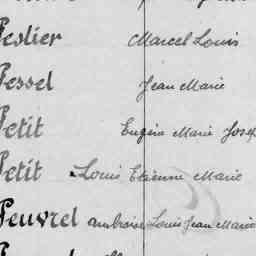 Peslier Marcel Louis
Pessel Jean Marie
Petit Eugène Marie Josep
Petit Louis Etienne Marie
Peuvrel Ambroise Louis Jean Marie